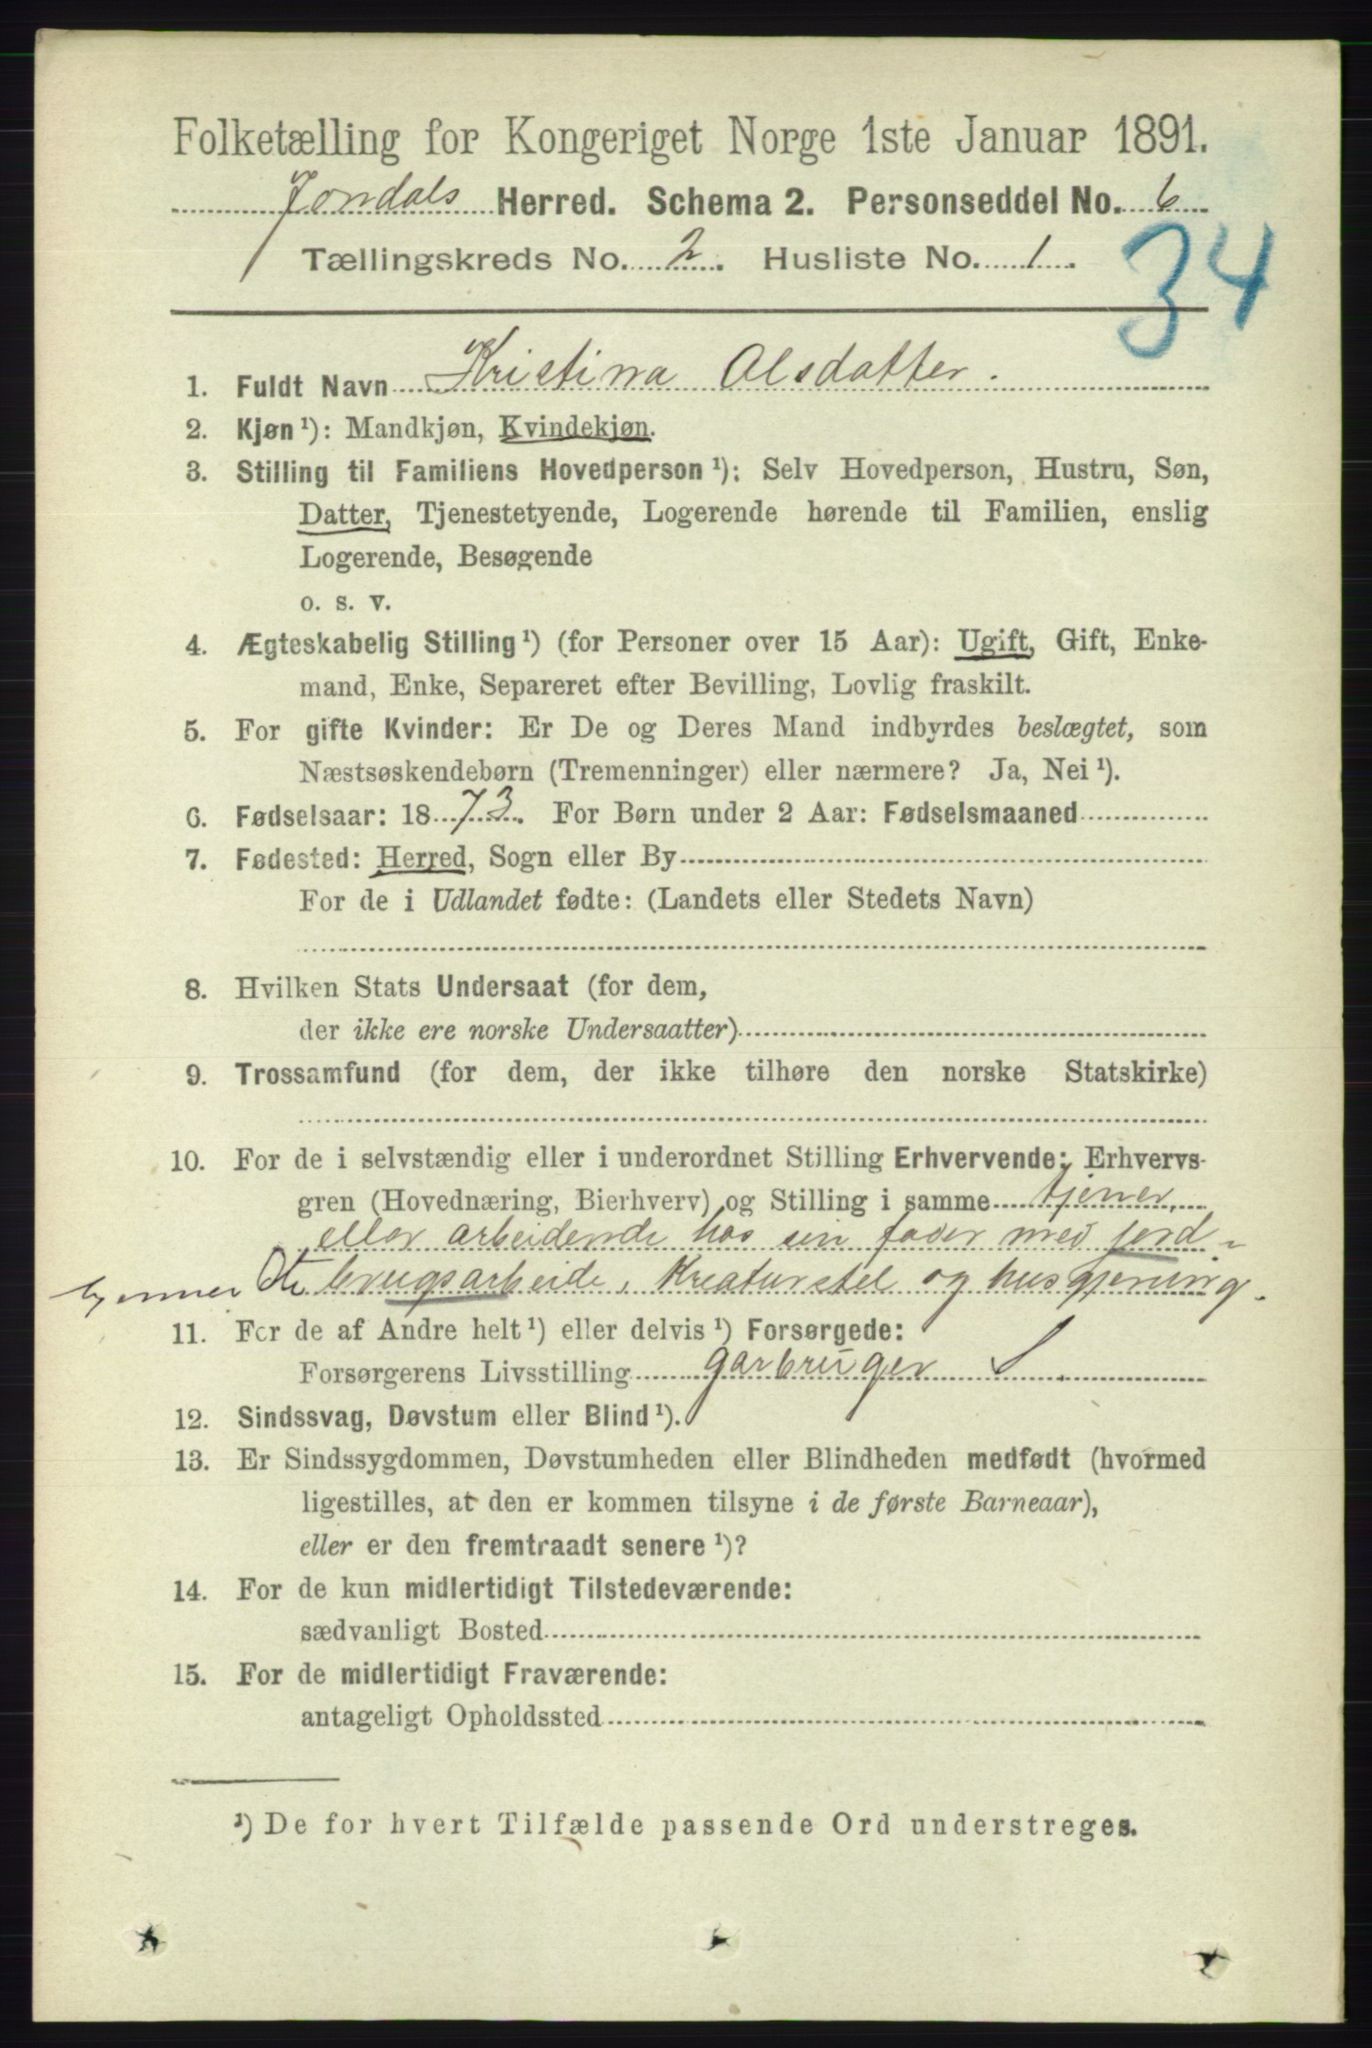 Folketælling for Kongeriget Norge 1ste Januar 1891.
Jondals Herred. Schema 2. Personseddel No. 6
Tællingskreds No. 2. Husliste No. 1.
34
1. Fuldt Navn Kristina Olsdatter.
2. Kjøn ¹): Mandkjøn, Kvindekjøn.
3. Stilling til Familiens Hovedperson ¹): Selv Hovedperson, Hustru, Søn,
Datter, Tjenestetyende, Logerende hørende til Familien, enslig
Logerende, Besøgende
o. s. v.
4. Ægteskabelig Stilling ¹) (for Personer over 15 Aar): Ugift, Gift, Enke-
mand, Enke, Separeret efter Bevilling, Lovlig fraskilt.
5. For gifte Kvinder: Er De og Deres Mand indbyrdes beslægtet, som
Næstsøskendebørn (Tremenninger) eller nærmere? Ja, Nei ¹).
6. Fødselsaar: 1873. For Børn under 2 Aar: Fødselsmaaned
7. Fødested: Herred, Sogn eller By
For de i Udlandet fødte: (Landets eller Stedets Navn)
8. Hvilken Stats Undersaat (for dem,
der ikke ere norske Undersaatter)
9. Trossamfund (for dem, der ikke tilhøre den norske Statskirke)
10. For de i selvstændig eller i underordnet Stilling Erhvervende: Erhvervs-
gren (Hovednæring, Bierhverv) og Stilling i samme tjener,
eller arbeidende hos sin fader med jord-
brugsarbeide, Kreaturstel og husgjerning.
11. For de af Andre helt ¹) eller delvis ¹) Forsørgede:
Forsørgerens Livsstilling garbruger S
12. Sindssvag, Døvstum eller Blind ¹).
13. Er Sindssygdommen, Døvstumheden eller Blindheden medfødt (hvormed
ligestilles, at den er kommen tilsyne i de første Barneaar),
eller er den fremtraadt senere ¹)?
14. For de kun midlertidigt Tilstedeværende:
sædvanligt Bosted
15. For de midlertidigt Fraværende:
antageligt Opholdssted
¹) De for hvert Tilfælde passende Ord understreges.